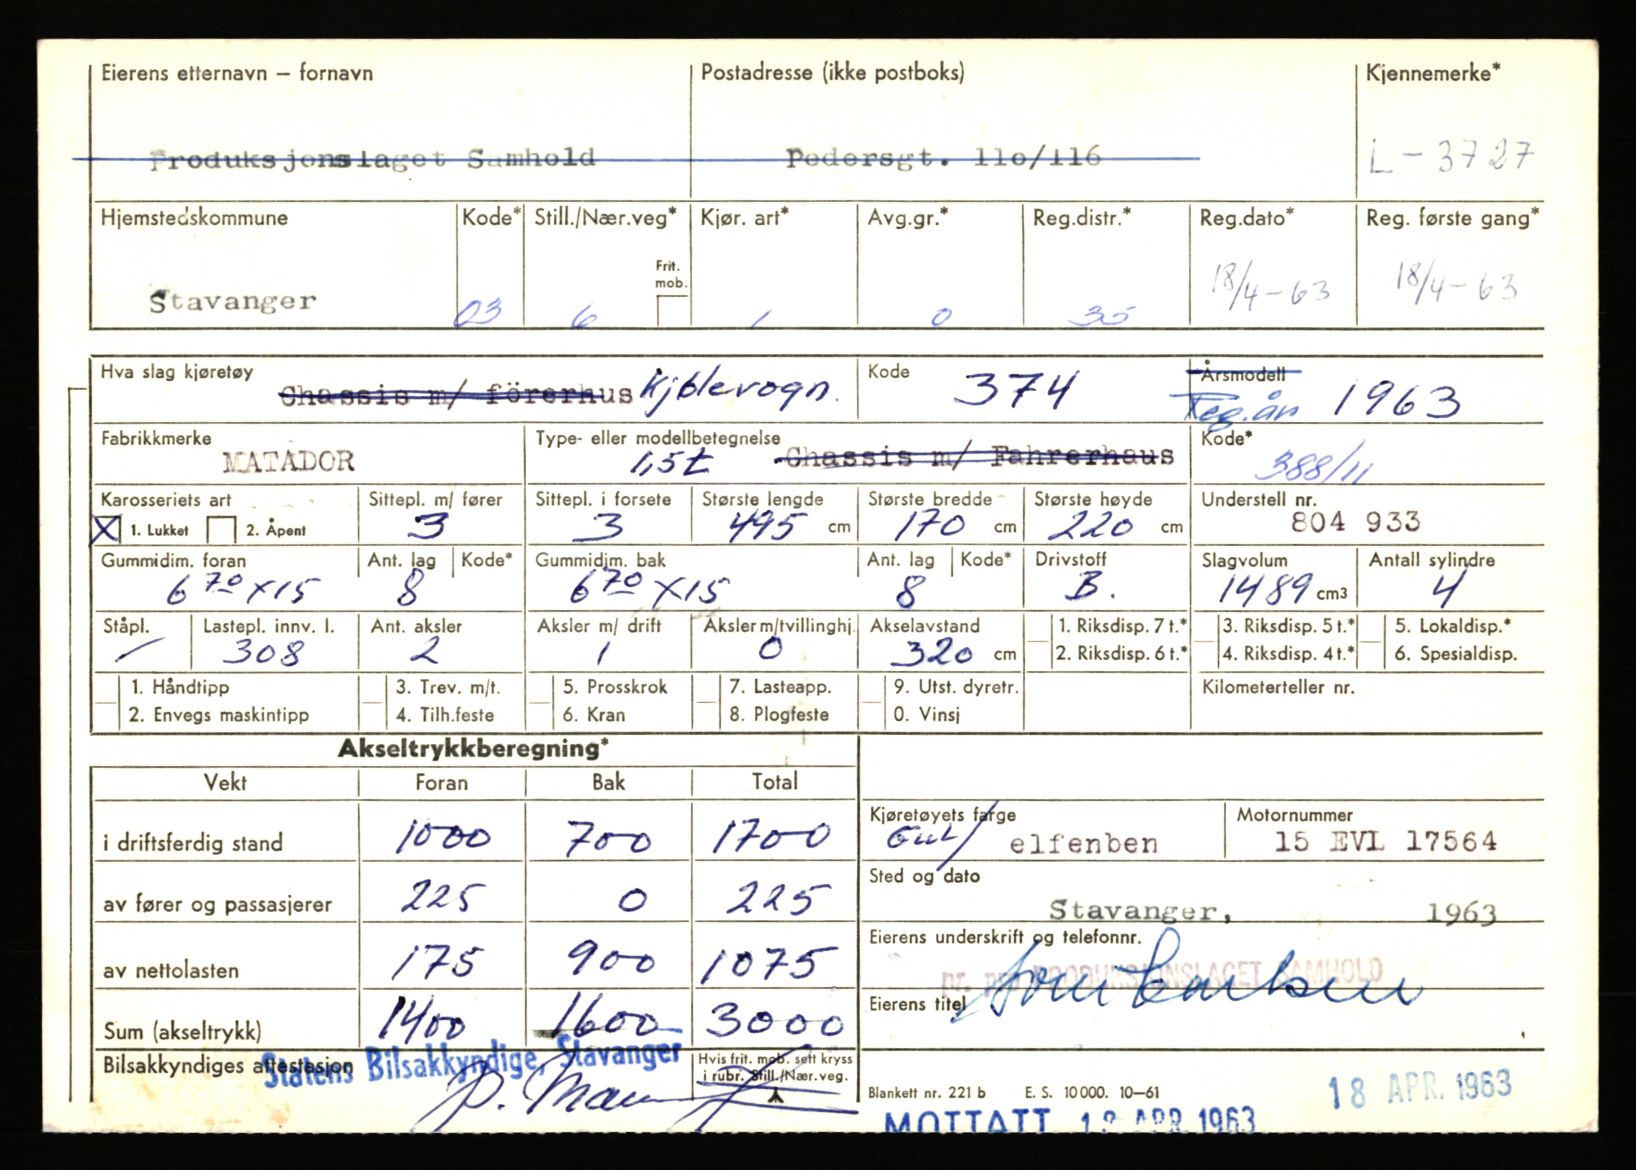 Eierens etternavn – fornavn Postadresse (ikke postboks) Kjennemerke*
Produksjonslaget Samhold Pedersgt. 110/116 L-3727
Hjemstedskommune Kode* Still./Nær.veg* Kjør. art* Avg.gr.* Reg.distr.* Reg.dato* Reg. første gang*
Frit. mob.
Stavanger 03 6 1 0 35 18/4-63 18/4-63
Hva slag kjøretøy Kode Årsmodell
Chassis m/ förerhus Kjølevogn. 374 Reg.år 1963
Fabrikkmerke Type- eller modellbetegnelse Kode*
MATADOR 1,5t Chassis m/ Fahrerhaus 388/11
Karosseriets art Sittepl. m/ fører Sittepl. i forsete Største lengde Største bredde Største høyde Understell nr.
X 1. Lukket 2. Åpent 3 3 495 cm 170 cm 220 cm 804 933
Gummidim. foran Ant. lag Kode* Gummidim. bak Ant. lag Kode* Drivstoff Slagvolum Antall sylindre
6 70 x15 8 6 70 x15 8 B. 1489 cm3 4
Ståpl. Lastepl. innv. l. Ant. aksler Aksler m/ drift Aksler m/tvillinghj. Akselavstand 1. Riksdisp. 7 t.* 3. Riksdisp. 5 t.* 5. Lokaldisp.*
/ 308 2 1 0 320 cm 2. Riksdisp. 6 t.* 4. Riksdisp. 4 t.* 6. Spesialdisp.
1. Håndtipp 3. Trev. m/t. 5. Prosskrok 7. Lasteapp. 9. Utst. dyretr. Kilometerteller nr.
2. Envegs maskintipp 4. Tilh.feste 6. Kran 8. Plogfeste 0. Vinsj
Akseltrykkberegning*
Vekt Foran Bak Total
i driftsferdig stand 1000 700 1700
av fører og passasjerer 225 0 225
av nettolasten 175 900 1075
Sum (akseltrykk) 1400 1600 3000
Kjøretøyets farge Motornummer
Gul/ elfenben 15 EVL 17564
Sted og dato
Stavanger, 1963
Eierens underskrift og telefonnr.
pr. pro PRODUKSJONSLAGET SAMHOLD
Eierens titel
Bilsakkyndiges attestasjon Statens Bilsakkyndige, Stavanger
Hvis frit. mob. sett kryss
i rubr. Still./Nær.veg.
Blankett nr. 221 b E. S. 10 000. 10–61
18 APR. 1963
MOTTATT 18 APR. 1963